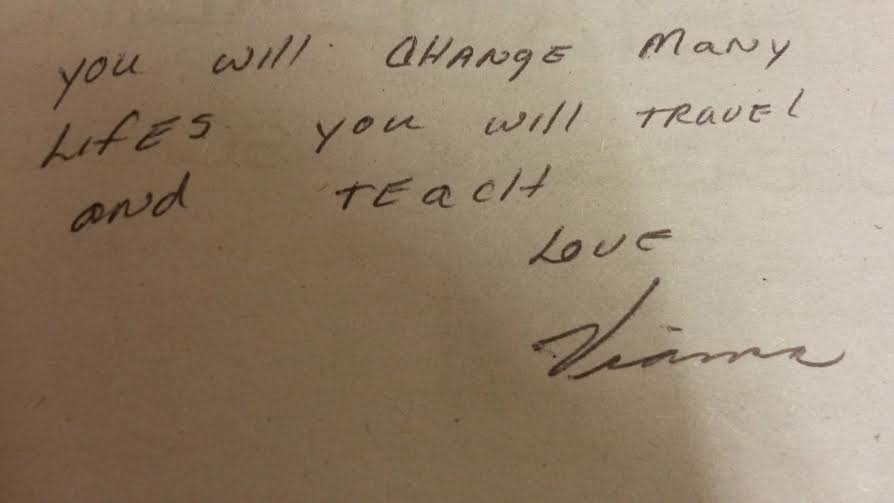 you will CHANGE MANY
LifES you will TRAVEL
and TEacH
LOVE
Vianna